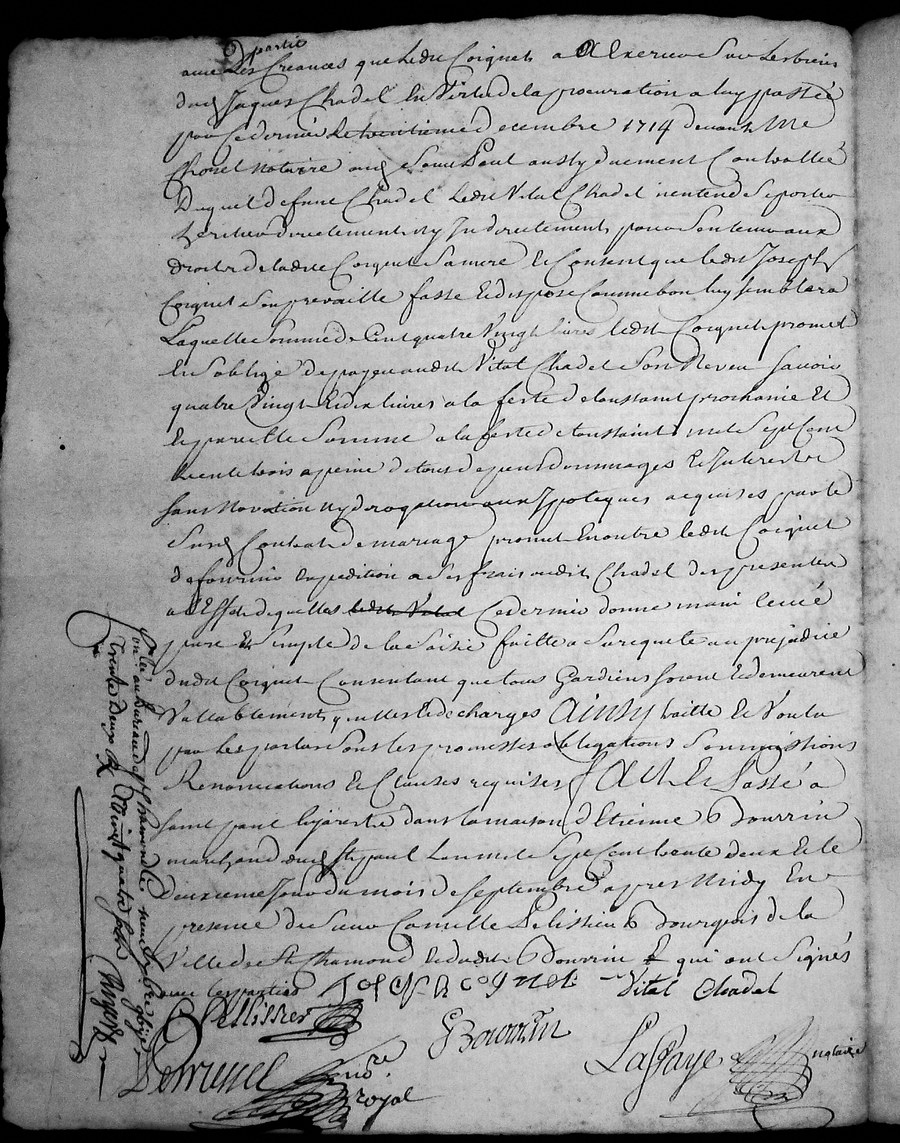 partie
avec Les Creances que Ledit Coignet a A Exercer Sur Les biens
dud Jaques Chadel En Vertu de la procuration a luy passée
par Ce dernier Le huitieme decembre 1714 devant Me
notaire aud Saint Paul aussy duement Controllée
Duquel defunt Chadel Ledit Vital Chadel n'entend Se porter
heritier directement ny Indirectement pour Son tenir aux
droits de ladite Coignet Sa mere Et Consent que ledit Joseph
Coignet Son prevaille fasse Et dispose Comme bon luy semblera
Laquelle Somme de Cent quatre Vingt livres ledit Coignet promet
Et S'oblige de payer audit Vital Chadel Son Neveu Savoir
quatre Vingt Et dix livres a la feste de toussaint prochaine Et
Et pareille Somme a la feste de toussaint mil Sept Cent
trente trois a peine de tous depens dommages Et Interest Et
Sans Novation ny derogation aux Ypoteques acquises par le
Susd Contrat de mariage promet En outre ledit Coignet
de fournir Expedition a Ses frais audit Chadel des presentes
a l'Effet de quelles ledit Vital Ce dernier donne main levée
pure Et Simple de la Saisie faitte a Sa requete au prejudice
dudit Coignet Consentant que tous Gardiens Soient Et demeurent
Vallablement quittes Et decharges Ainsy traitté Et Voulu
par Les parties Sous Les promesses obligations Soumissions
Renonciations Et Clauses requises Fait Et Passé a
Saint paul En Jarest dans la maison d'Etienne Bourrin
marchand dud St paul L'an mil Sept Cent trente deux Et le
Deuxieme Jour du mois de Septembre apres Midy En
presence de Sieur Camille Pelissier Bourgeois de la
Ville de St Chamond Et dudit Bourrin qui ont Signés
avec les parties Joseph Cognet Vital Chadel
Pellissier
Bourrin
Lafaye notaire
nore
royal
Con.lé au bureau de St Chamond Le neuf 7bre
trente deux